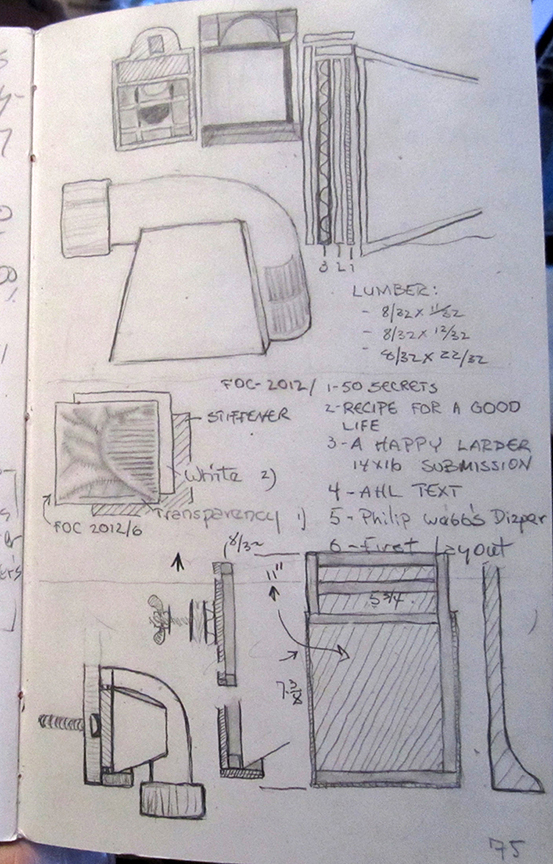 3 2 1
LUMBER:
- 8/32 X 11/32
- 8/32 X 12/32
- 8/32 X 22/32
FOC-2012/ 1-50 SECRETS
2-RECIPE FOR A GOOD
LIFE
3-A HAPPY LARDER
14X16 SUBMISSION
4-AHL TEXT
5-Philip Webb's Diaper
6-First Layout
STIFFENER
White 2)
Transparency 1)
FOC 2012/6
8/32
11"
5 3/4
7 3/8
75